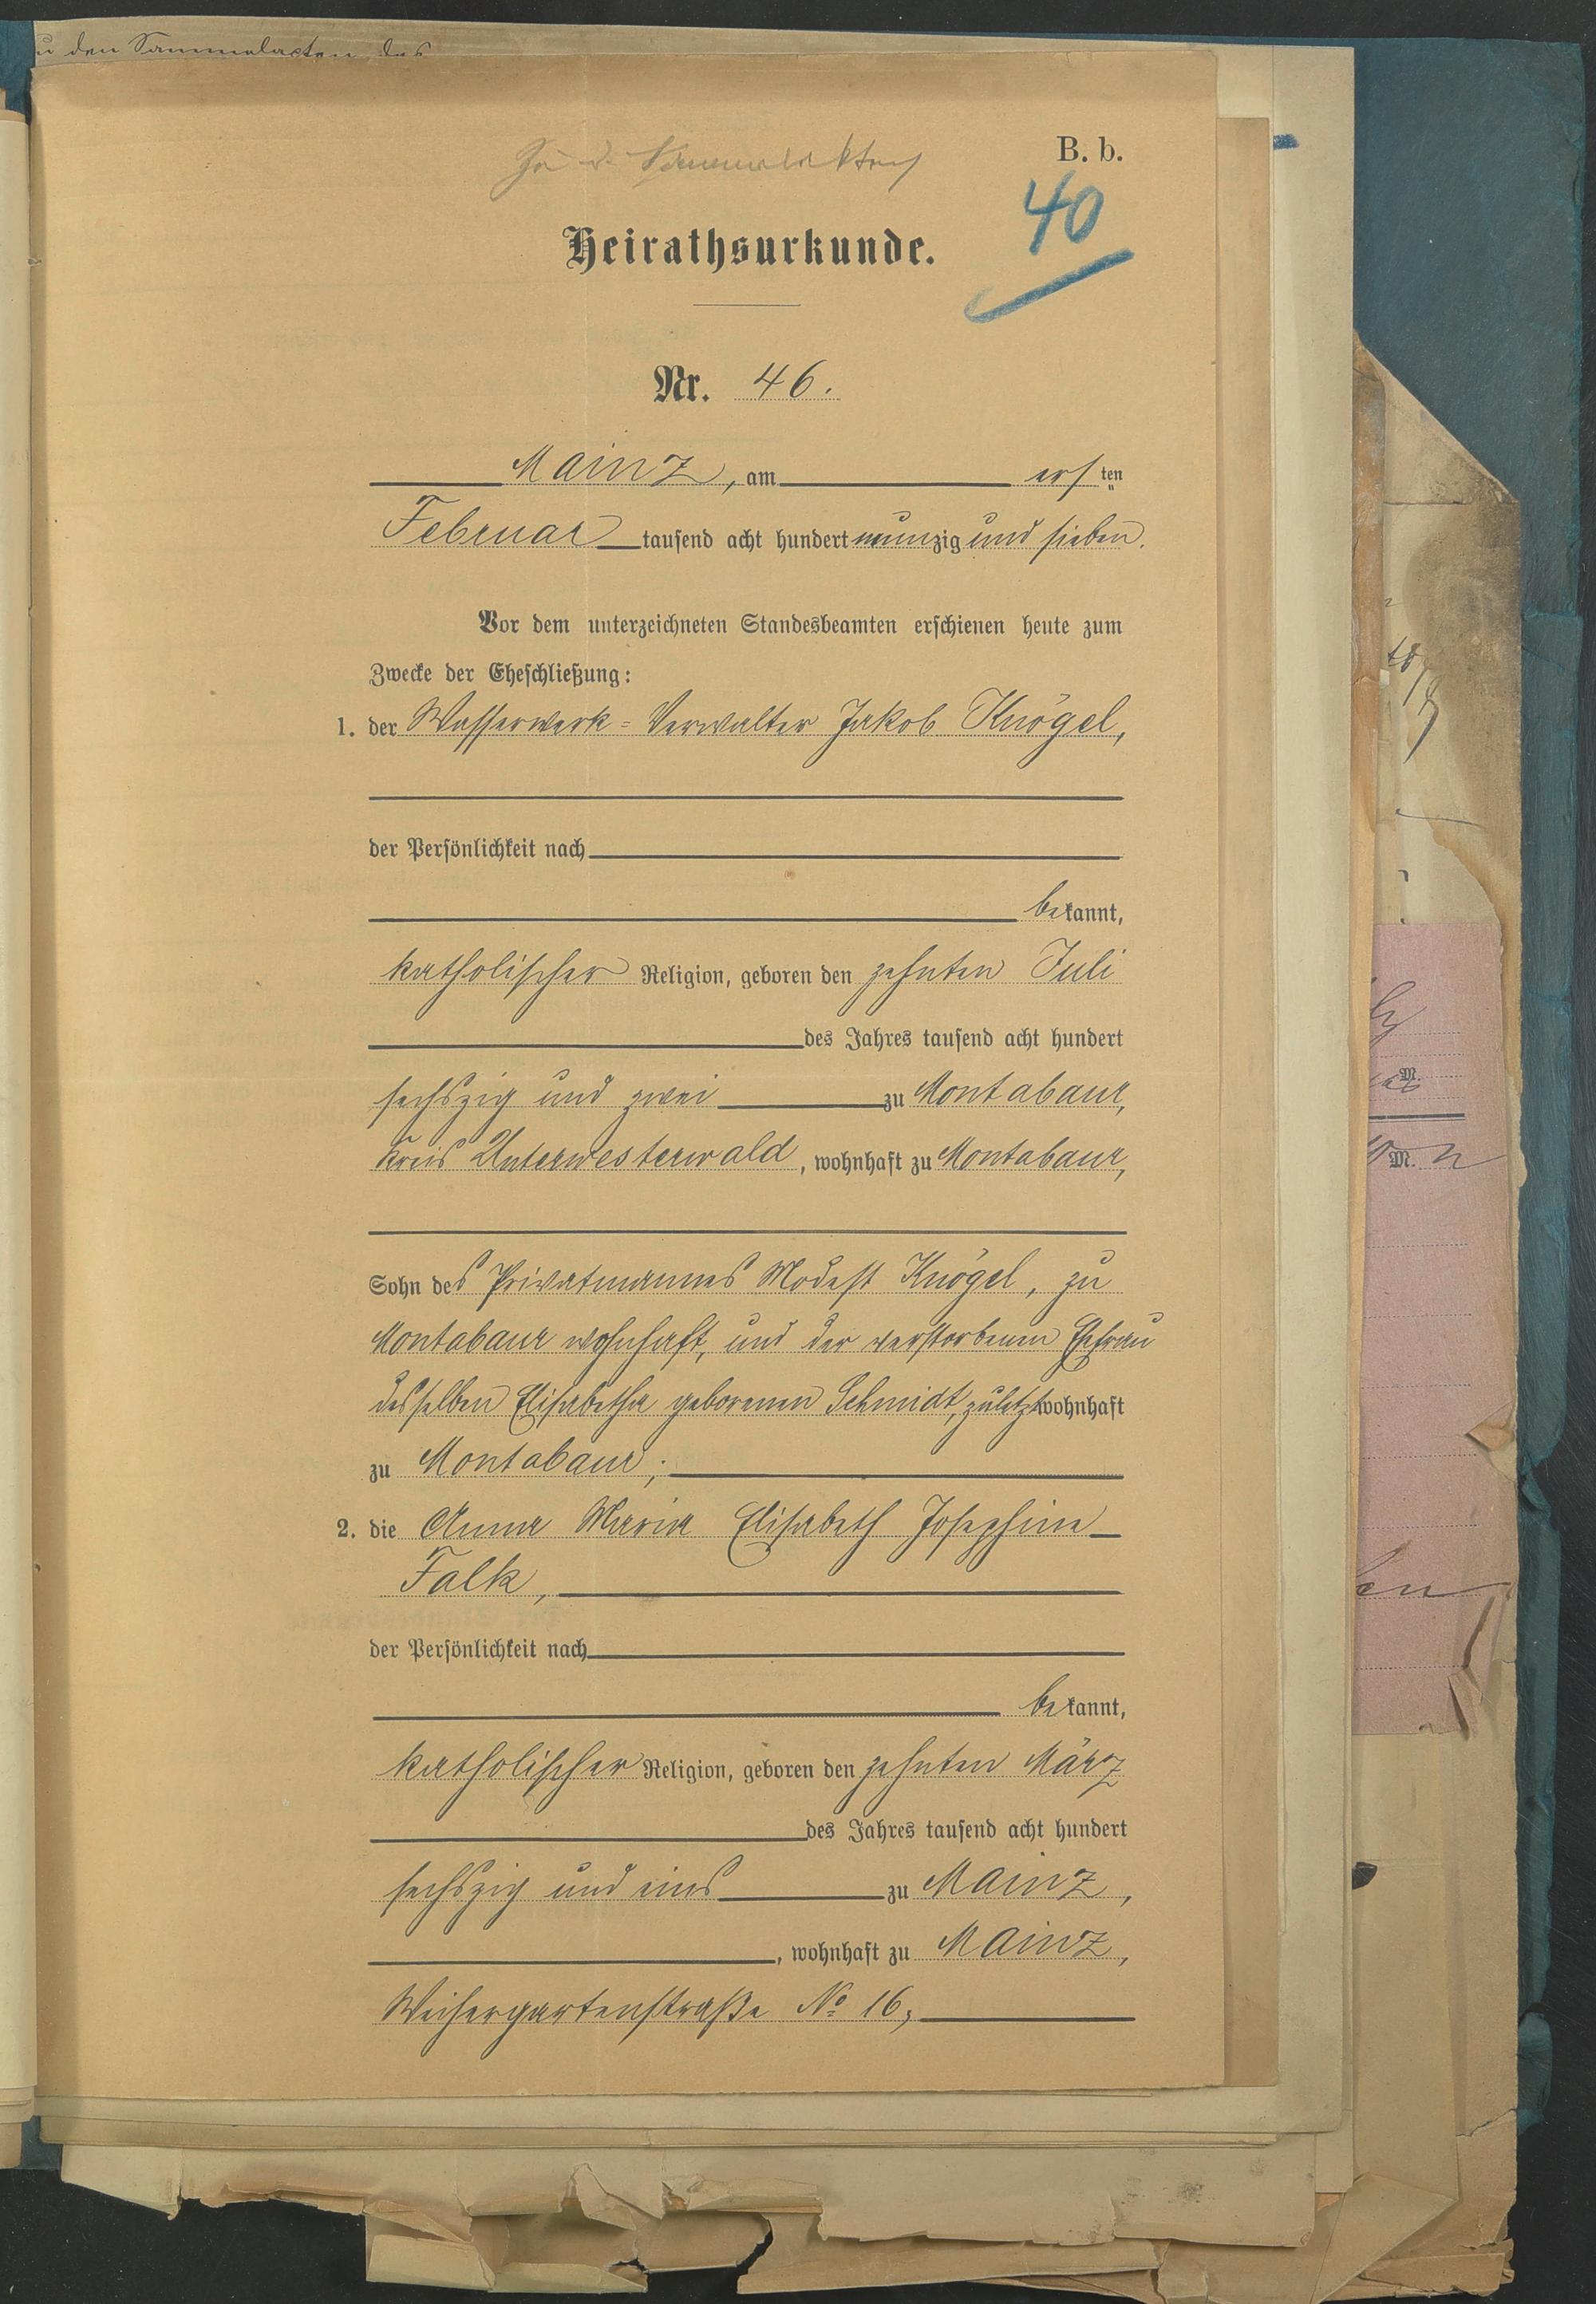 zu den Sammelacten des
Zu d. Sammelakten
B. b.
40
Heirathsurkunde.
Nr. 46.
Mainz, am ersten
Februar tausend acht hundert neunzig und sieben.
Vor dem unterzeichneten Standesbeamten erschienen heute zum
Zwecke der Eheschließung:
1. der Wasserwerk-Verwalter Jakob Knögel,
der Persönlichkeit nach
bekannt,
katholischer Religion, geboren den zehnten Juli
des Jahres tausend acht hundert
sechszig und zwei zu Montabaur,
Kreis Unterwesterwald, wohnhaft zu Montabaur,
Sohn des Privatmannes Modest Knögel, zu
Montabaur wohnhaft, und der verstorbenen Ehefrau
desselben Elisabetha geborenen Schmidt, zuletzt wohnhaft
zu Montabaur;
2. die Anna Maria Elisabeth Josephine
Falk,
der Persönlichkeit nach
bekannt,
katholischer Religion, geboren den zehnten März
des Jahres tausend acht hundert
sechszig und eins zu Mainz,
, wohnhaft zu Mainz,
Weihergartenstraße No 16,
M.
M.